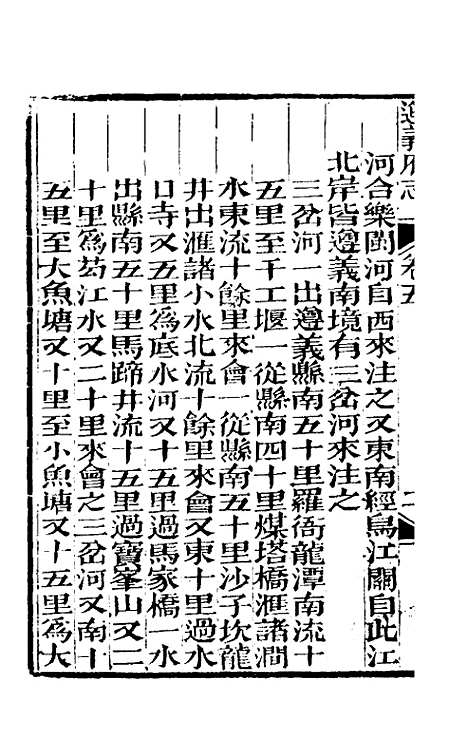 遵義府志 卷五
河合樂閩河自西來注之又東南經烏江關自此江
北岸皆遵義南境有三岔河來注之
三岔河一出遵義縣南五十里羅衙龍潭南流十
五里至千工堰一從縣南四十里煤塔橋滙諸澗
水東流十餘里來會一從縣南五十里沙子坎龍
井出滙諸小水北流十餘里來會又東十里過水
口寺又五里爲底水河又十五里過馬家橋一水
出縣南五十里馬蹄井流十五里過寶峯山又二
十里爲芶江水又二十里來會之三岔河又南十
五里至大魚塘又十里至小魚塘又十五里爲大